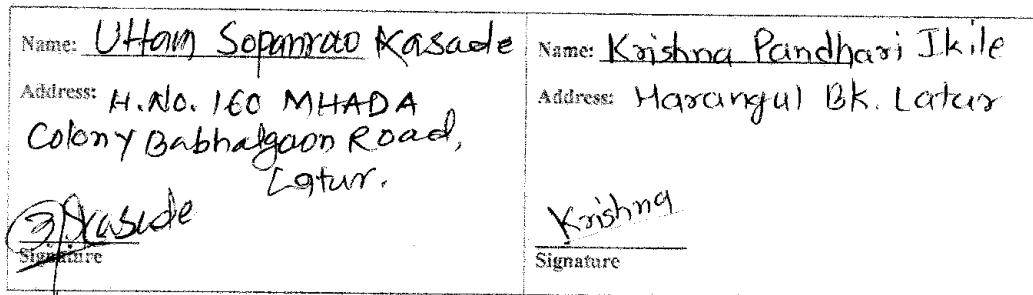 Name: Uttam Sopanrao Kasade
Address: H.No. 160 MHADA
Colony Babhalgaon Road,
Latur.
Kasade
Signature
Name: Krishna Pandhari Ikile
Address: Harangul Bk. Latur
Krishna
Signature